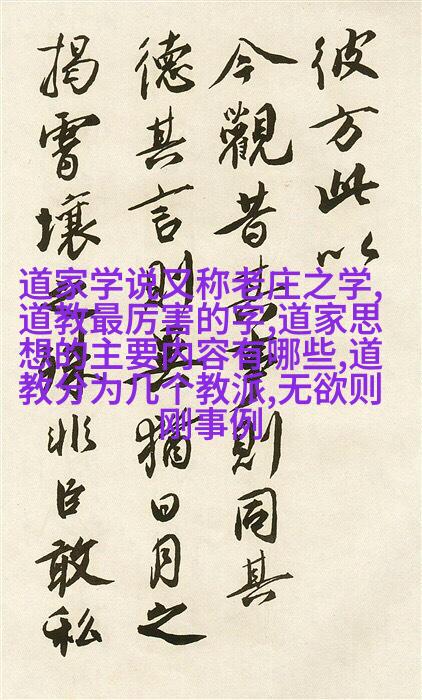 彼方此以
今觀昔其事則同其
德其言則猶日月之
揭霄壤殊非臣敢私
道家学说又称老庄之学,
道教最厉害的字,道家思
想的主要内容有哪些,道
教分为几个教派,无欲则
刚事例